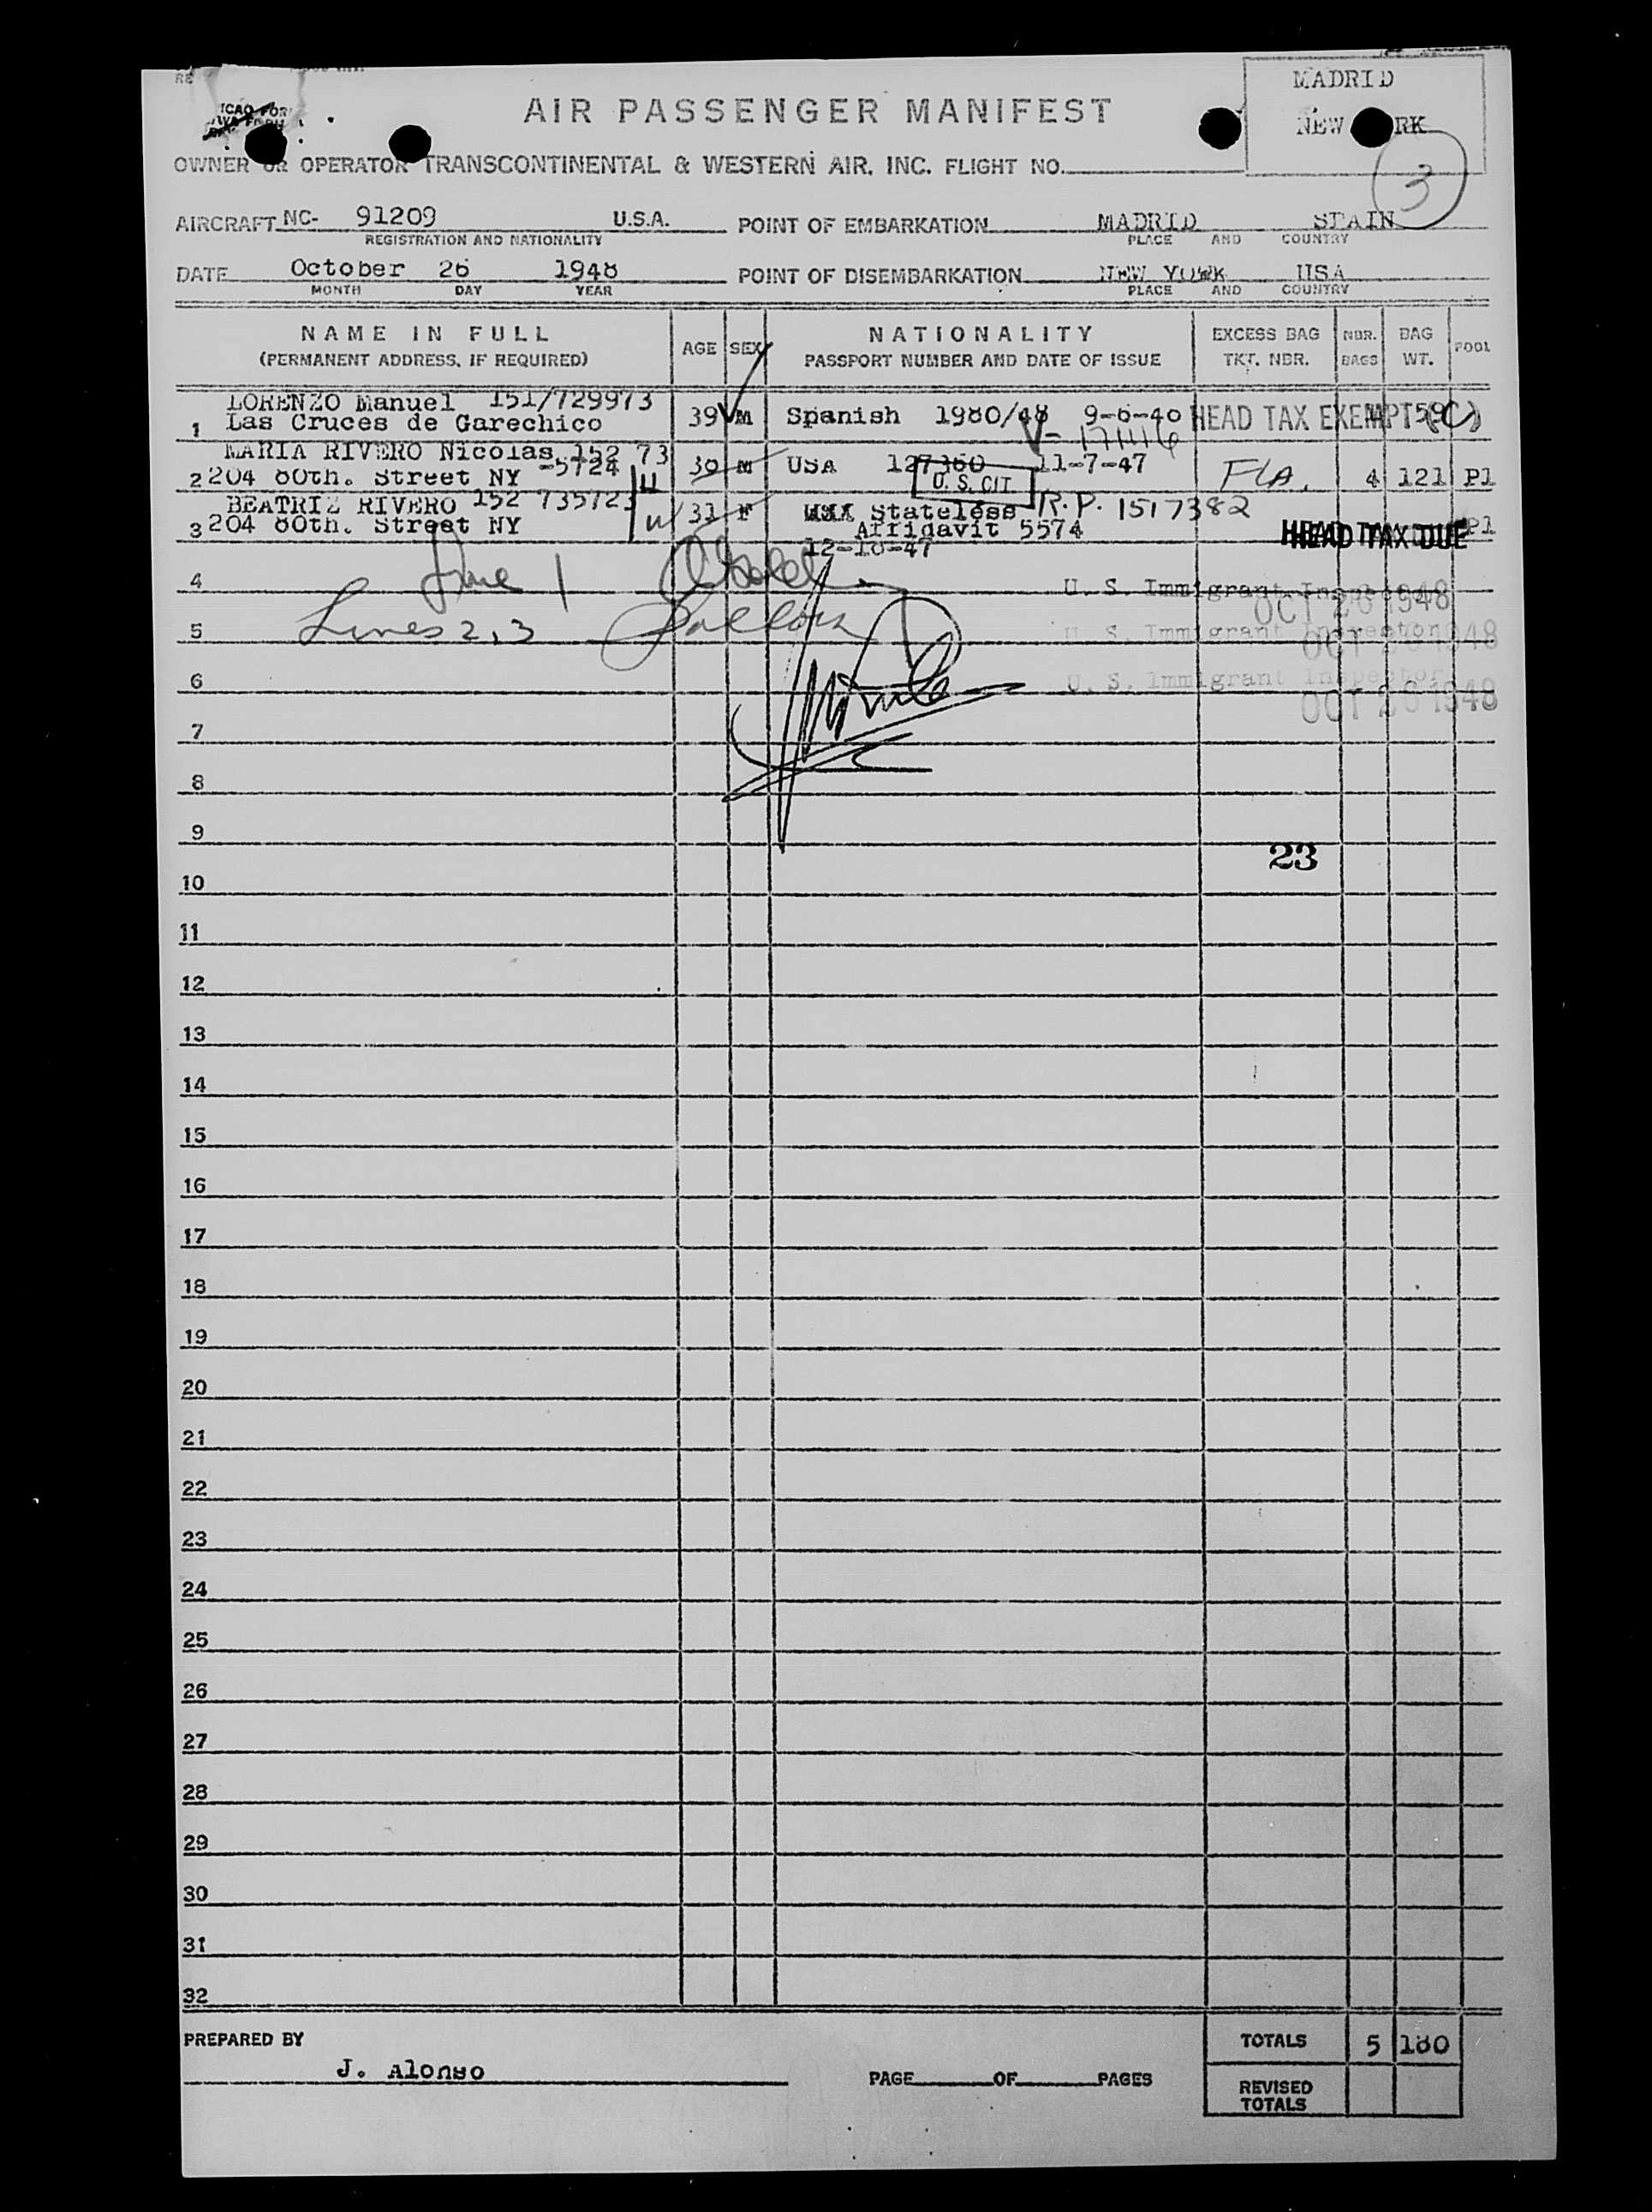 MADRID
AIR PASSENGER MANIFEST
NEW RK
3
OWNER OR OPERATOR TRANSCONTINENTAL & WESTERN AIR. INC. FLIGHT NO.
AIRCRAFT NC- 91209 U.S.A. POINT OF EMBARKATION MADRID SPAIN
REGISTRATION AND NATIONALITY PLACE AND COUNTRY
DATE October 26 1948 POINT OF DISEMBARKATION NEW YORK USA
MONTH DAY YEAR PLACE AND COUNTRY
NAME IN FULL AGE SEX NATIONALITY EXCESS BAG NBR. BAG POOL
(PERMANENT ADDRESS, IF REQUIRED) PASSPORT NUMBER AND DATE OF ISSUE TKT. NBR. BAGS WT.
LORENZO Manuel 151/729973
1 Las Cruces de Garechico 39 M Spanish 1980/48 9-6-48 HEAD TAX EXEMPT (C) 59
MARIA RIVERO Nicolas 152 73
-5724
2 204 80th. Street NY 30 M USA 127360 11-7-47 FLA. 4 121 P1
U. S. CIT
BEATRIZ RIVERO 152 735723
3 204 80th. Street NY W 31 F Stateless R.P. 1517382
Affidavit 5574 HEAD TAX DUE P1
12-10-47
Line 1
4 U. S. Immigrant Inspector
OCT 26 1948
Lines 2, 3
5 U. S. Immigrant Inspector
OCT 26 1948
6 U. S. Immigrant Inspector
OCT 26 1948
7
8
9
23
10
11
12
13
14
15
16
17
18
19
20
21
22
23
24
25
26
27
28
29
30
31
32
PREPARED BY TOTALS 5 180
J. Alonso PAGE OF PAGES
REVISED
TOTALS